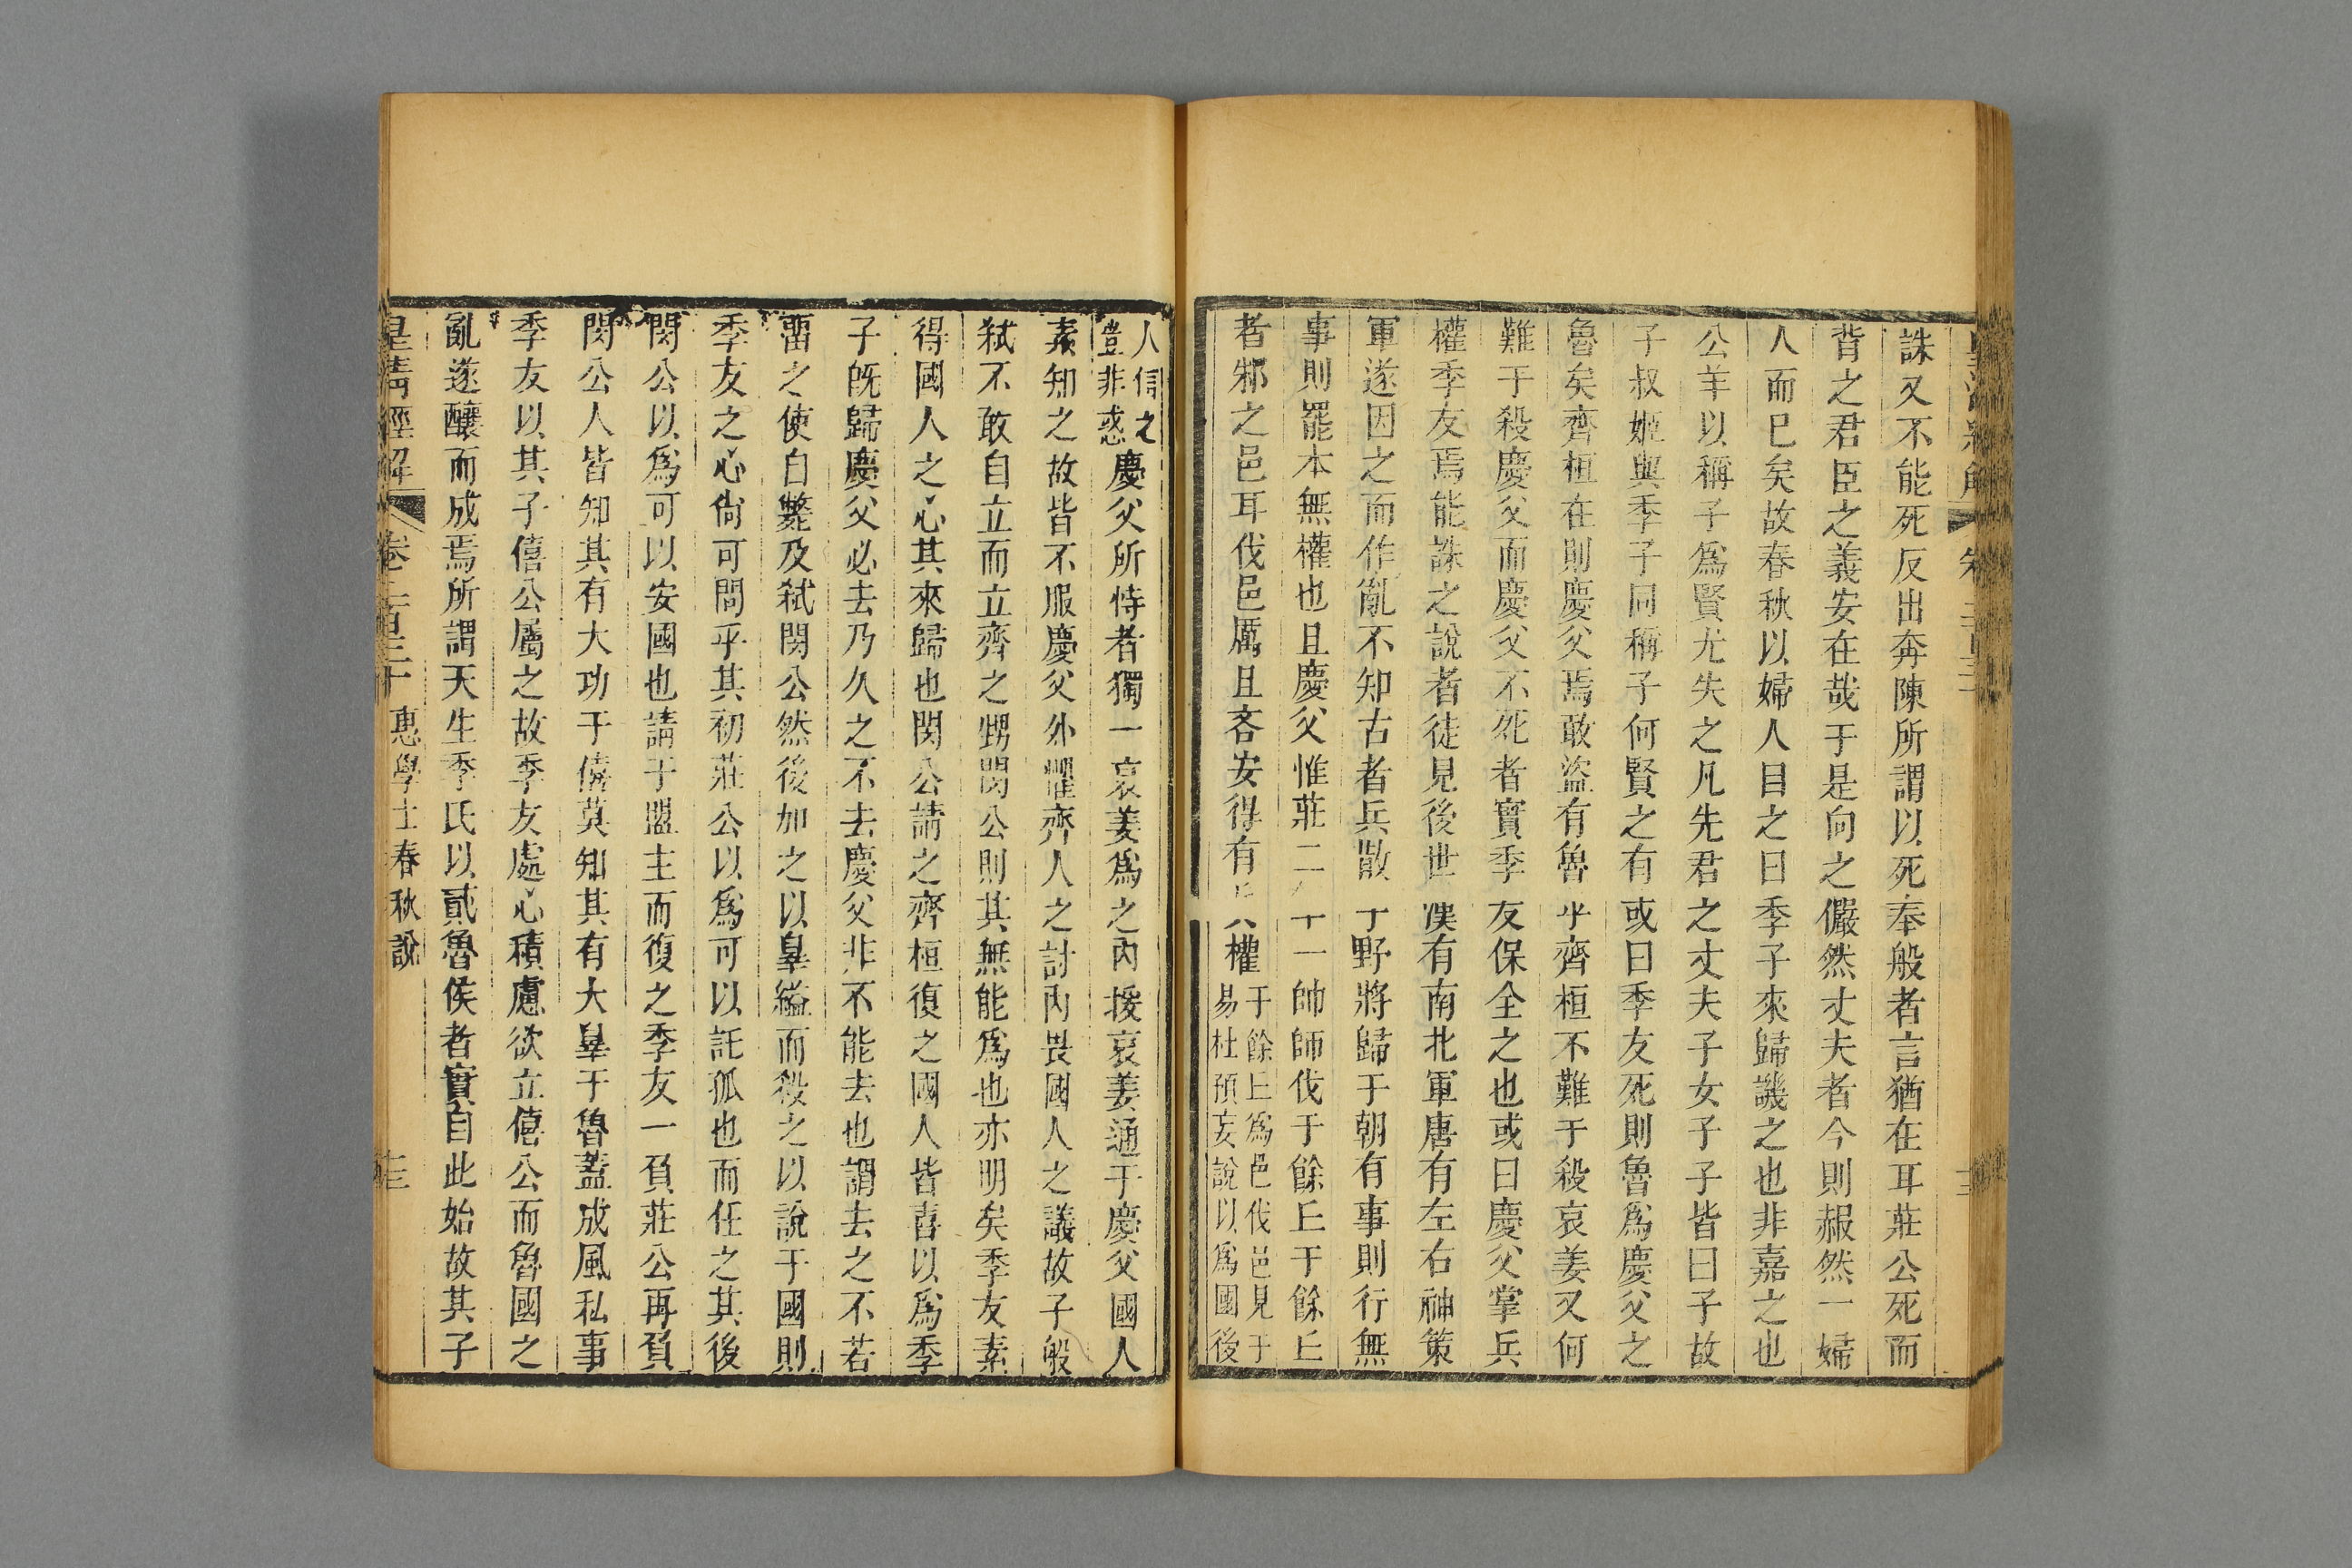 誅又不能死反出奔陳所謂以死奉般者言猶在耳莊公死而
背之君臣之義安在哉于是向之儼然丈夫者今則赧然一婦
人而已矣故春秋以婦人目之曰季子來歸譏之也非嘉之也
公羊以稱子爲賢尤失之凡先君之丈夫子女子子皆曰子故
子叔姬與季子同稱子何賢之有或曰季友死則魯爲慶父之
魯矣齊桓在則慶父焉敢盜有魯乎齊桓不難于殺哀姜又何
難于殺慶父而慶父不死者實季友保全之也或曰慶父掌兵
權季友焉能誅之說者徒見後世漢有南北軍唐有左右神策
軍遂因之而作亂不知古者兵散于野將歸于朝有事則行無
事則罷本無權也且慶父惟莊二年一帥師伐于餘丘于餘丘
者邾之邑耳伐邑厲且吝安得有兵權
于餘丘爲邑伐邑見于
易杜預妄說以爲國後
人信之
豈非惑
慶父所恃者獨一哀姜爲之內援哀姜通于慶父國人
素知之故皆不服慶父外懼齊人之討內畏國人之議故子般
弒不敢自立而立齊之甥閔公則其無能爲也亦明矣季友素
得國人之心其來歸也閔公請之齊桓復之國人皆喜以爲季
子旣歸慶父必去乃久之不去慶父非不能去也謂去之不若
畱之使自斃及弒閔公然後加之以辠縊而殺之以說于國則
季友之心尙可問乎其初莊公以爲可以託孤也而任之其後
閔公以爲可以安國也請于盟主而復之季友一負莊公再負
閔公人皆知其有大功于僖莫知其有大辠于魯蓋成風私事
季友以其子僖公屬之故季友處心積慮欲立僖公而魯國之
亂遂釀而成焉所謂天生季氏以貳魯侯者實自此始故其子
皇清經解 卷二百三十 惠學士春秋說 十三